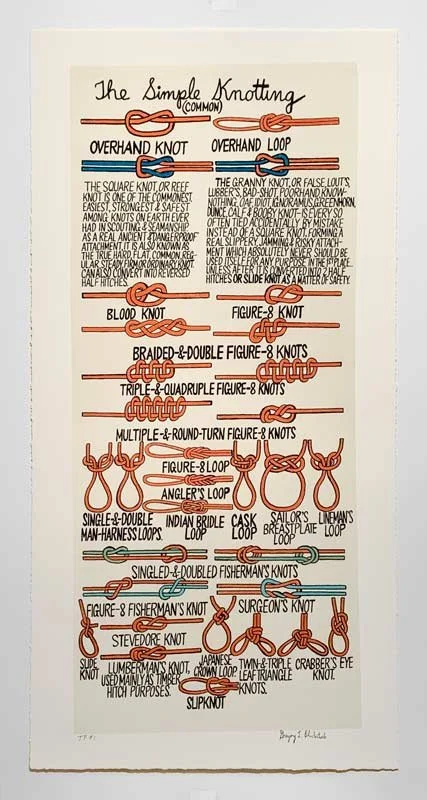 The Simple Knotting
(COMMON)
OVERHAND KNOT
OVERHAND LOOP
THE SQUARE KNOT, OR REEF
KNOT IS ONE OF THE COMMONEST,
EASIEST, STRONGEST & SAFEST
AMONG KNOTS ON EARTH EVER
HAD IN SCOUTING & SEAMANSHIP
AS A REAL ANCIENT & DANGERPROOF
ATTACHMENT, IT IS ALSO KNOWN AS
THE TRUE, HARD, FLAT, COMMON, REG-
ULAR, STEADY, FIRM OR ORDINARY KNOT.
CAN ALSO CONVERT INTO REVERSED
HALF HITCHES.
THE GRANNY KNOT, OR FALSE, LOUT'S,
LUBBER'S, BAD-SHOT, POORHAND, KNOW-
NOTHING, OAF, IDIOT, IGNORAMUS, GREENHORN,
DUNCE, CALF & BOOBY KNOT-IS EVERY SO
OFTEN TIED ACCIDENTALLY BY MISTAKE
INSTEAD OF A SQUARE KNOT, FORMING A
REAL SLIPPERY, JAMMING & RISKY ATTACH-
MENT WHICH ABSOLUTELY NEVER SHOULD BE
USED ITSELF FOR ANY PURPOSE IN THE 1ST PLACE
UNLESS AFTER IT'S CONVERTED INTO 2 HALF
HITCHES OR SLIDE KNOT AS A MATTER OF SAFETY.
BLOOD KNOT
FIGURE-8 KNOT
BRAIDED-&-DOUBLE FIGURE-8 KNOTS
TRIPLE-&-QUADRUPLE FIGURE-8 KNOTS
MULTIPLE-&-ROUND-TURN FIGURE-8 KNOTS
FIGURE-8 LOOP
ANGLER'S LOOP
SINGLE-&-DOUBLE
MAN-HARNESS LOOPS.
INDIAN BRIDLE
LOOP
CASK
LOOP
SAILOR'S
BREASTPLATE
LOOP
LINEMAN'S
LOOP
SINGLED-&-DOUBLED FISHERMAN'S KNOTS
FIGURE-8 FISHERMAN'S KNOT
SURGEON'S KNOT
STEVEDORE KNOT
SLIDE
KNOT
LUMBERMAN'S KNOT,
USED MAINLY AS TIMBER
HITCH PURPOSES.
JAPANESE
CROWN LOOP.
TWIN-&-TRIPLE
LEAF TRIANGLE
KNOTS.
CRABBER'S EYE
KNOT.
SLIPKNOT